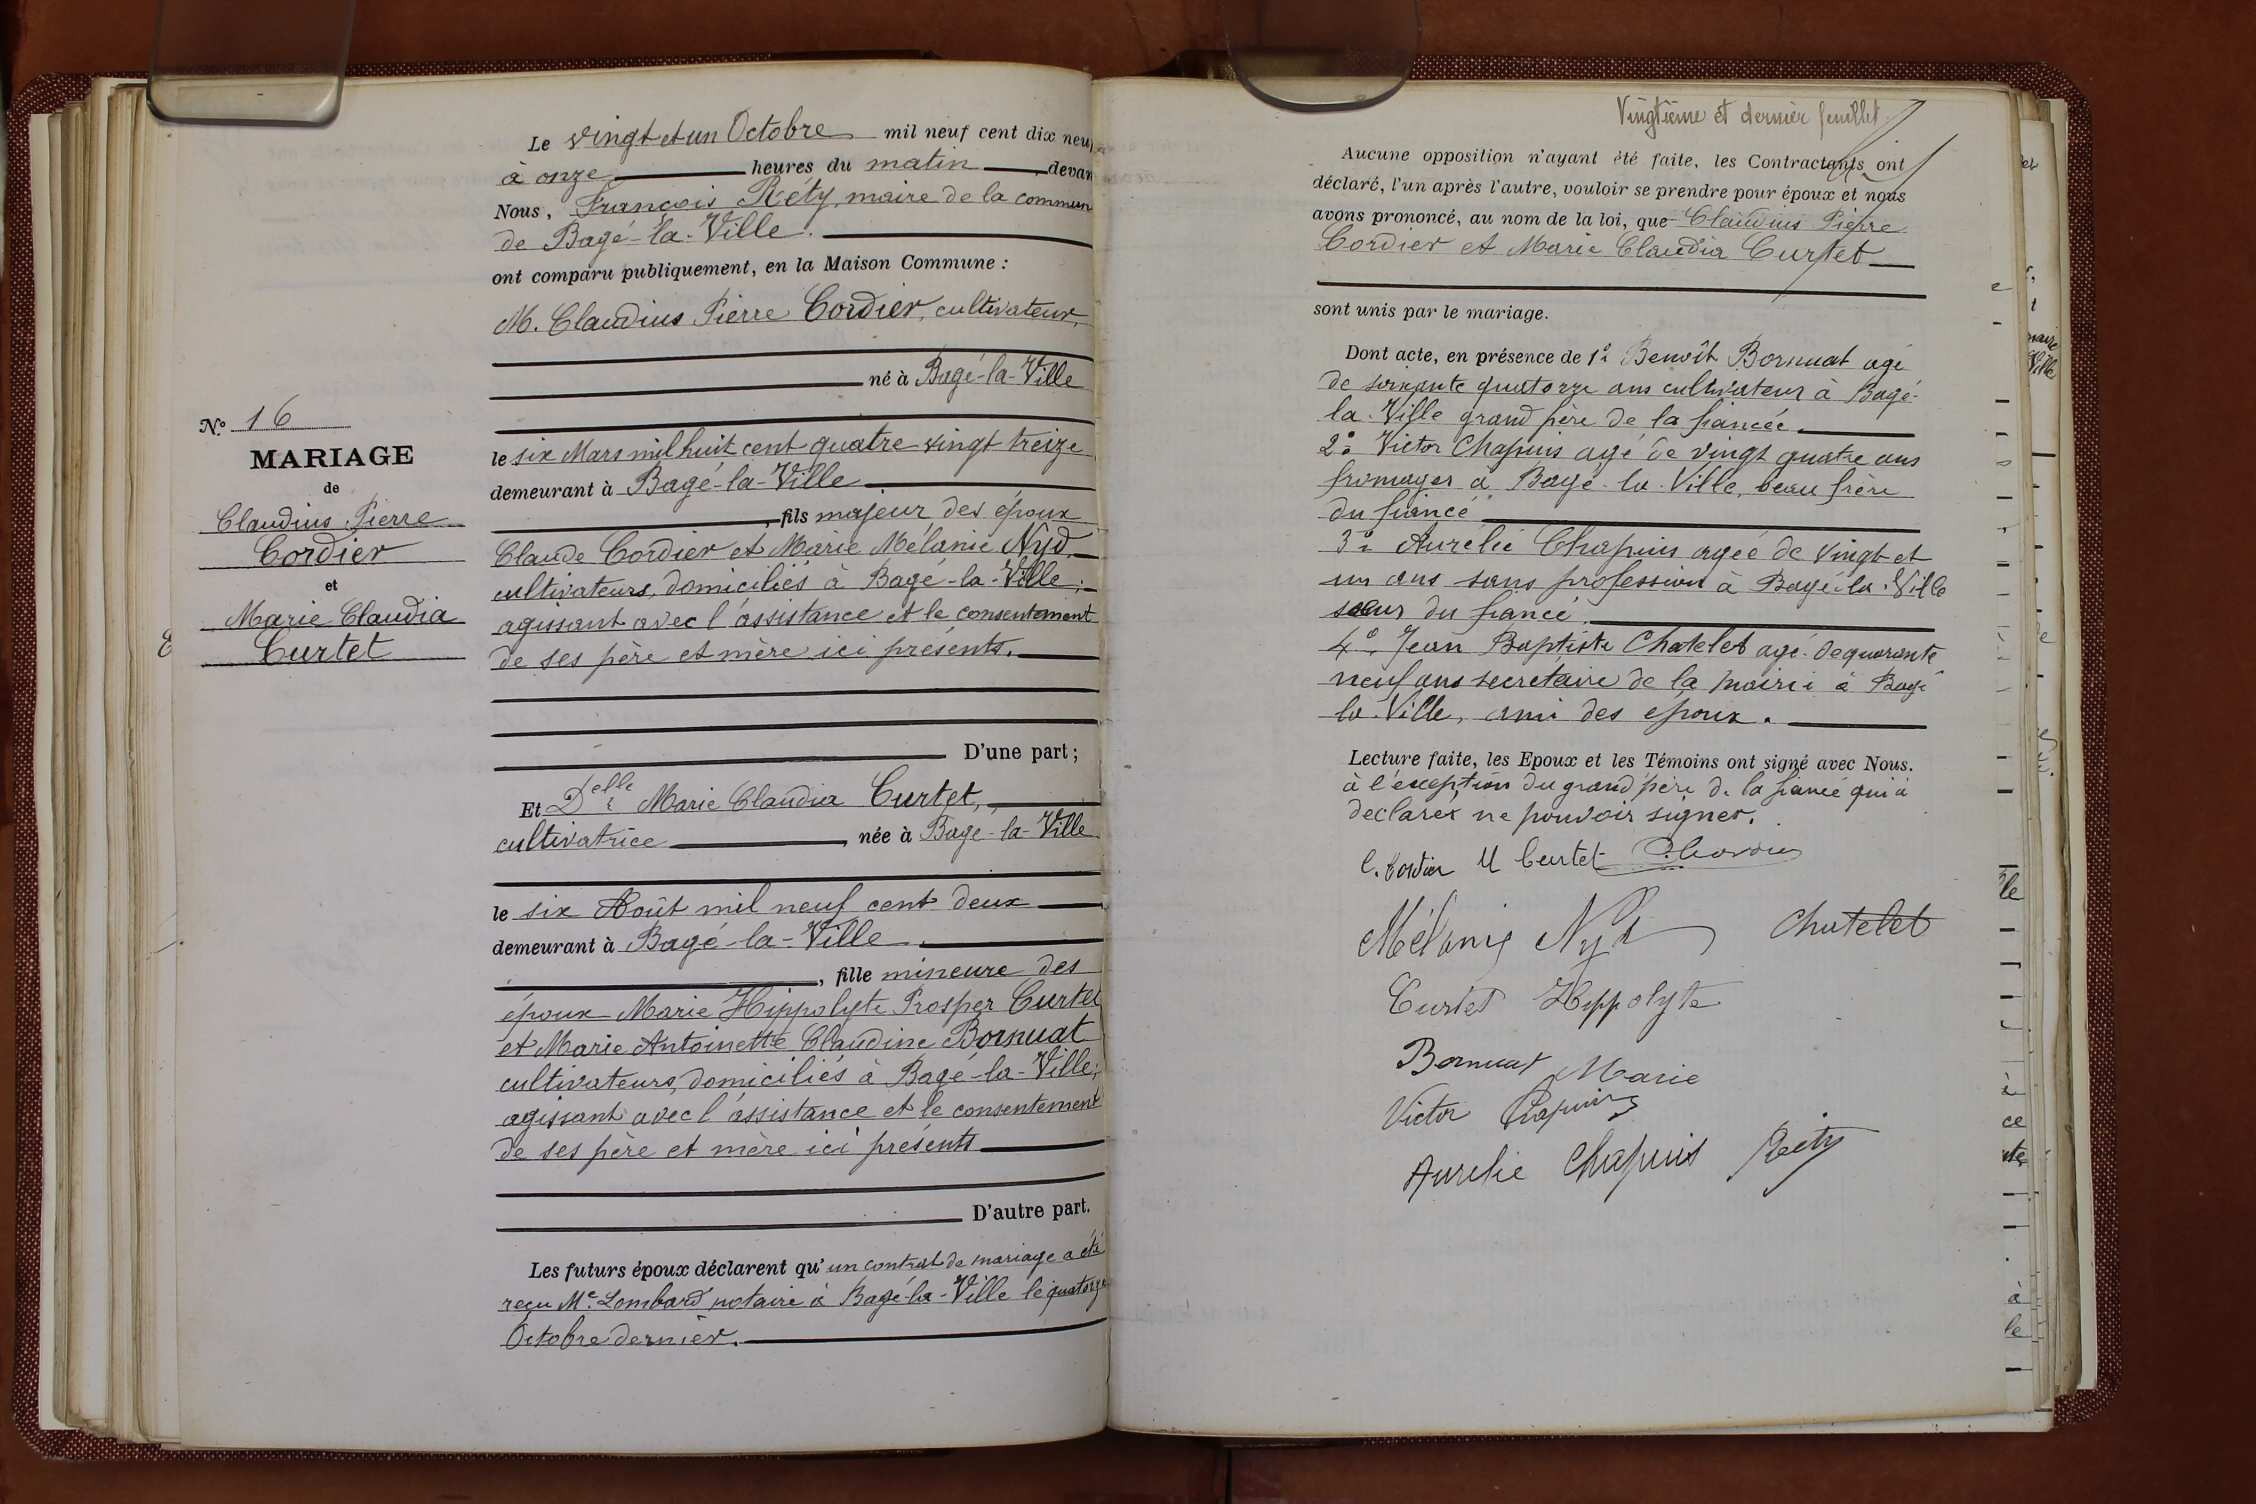 Le vingt et un Octobre mil neuf cent dix neuf
à onze heures du matin, devan
Nous, François Réty, maire de la commun
de Bagé-la-Ville.
ont comparu publiquement, en la Maison Commune :
M. Claudius Pierre Cordier, cultivateur,
né à Bagé-la-Ville
le six Mars mil huit cent quatre-vingt treize
demeurant à Bagé-la-Ville
, fils majeur des époux
Claude Cordier et Marie Mélanie Nyd,
cultivateurs, domiciliés à Bagé-la-Ville;
agissant avec l'assistance et le consentement
de ses père et mère ici présents.
D'une part ;
Et Delle Marie Claudia Curtet,
cultivatrice, née à Bagé-la-Ville
le six Août mil neuf cent deux
demeurant à Bagé-la-Ville
, fille mineure des
époux Marie Hippolyte Prosper Curtet
et Marie Antoinette Claudine Bornuat
cultivateurs, domiciliés à Bagé-la-Ville;
agissant avec l'assistance et le consentement
de ses père et mère ici présents
D'autre part.
Les futurs époux déclarent qu'un contrat de mariage a été
reçu Me. Lombard notaire à Bagé-la-Ville le quatorze
Octobre dernier.
N.º 16
MARIAGE
de
Claudius Pierre
Cordier
et
Marie Claudia
Curtet
Vingtième et dernier feuillet.
Aucune opposition n'ayant été faite, les Contractants ont
déclaré, l'un après l'autre, vouloir se prendre pour époux et nous
avons prononcé, au nom de la loi, que Claudius Pierre
Cordier et Marie Claudia Curtet
sont unis par le mariage.
Dont acte, en présence de 1º Benoît Bornuat agé
de soixante quatorze ans cultivateur à Bagé-
la-Ville grand père de la fiancée.
2º Victor Chapuis agé de vingt quatre ans
fromager à Bagé-la-Ville, beau frère
du fiancé
3º Aurélie Chapuis agée de vingt et
un ans sans profession à Bagé-la-Ville
sœur du fiancé.
4º Jean Baptiste Chatelet agé de quarante
neuf ans secrétaire de la mairie à Bagé
la-Ville, ami des époux.
Lecture faite, les Epoux et les Témoins ont signé avec Nous.
à l'exception du grand père de la fiancé qui a
declaré ne pouvoir signer.
C. Cordier M Curtet C. Cordier
Mélanie Nyd Chatelet
Curtet Hippolyte
Bornuat Marie
Victor Chapuis
Aurelie Chapuis Réty